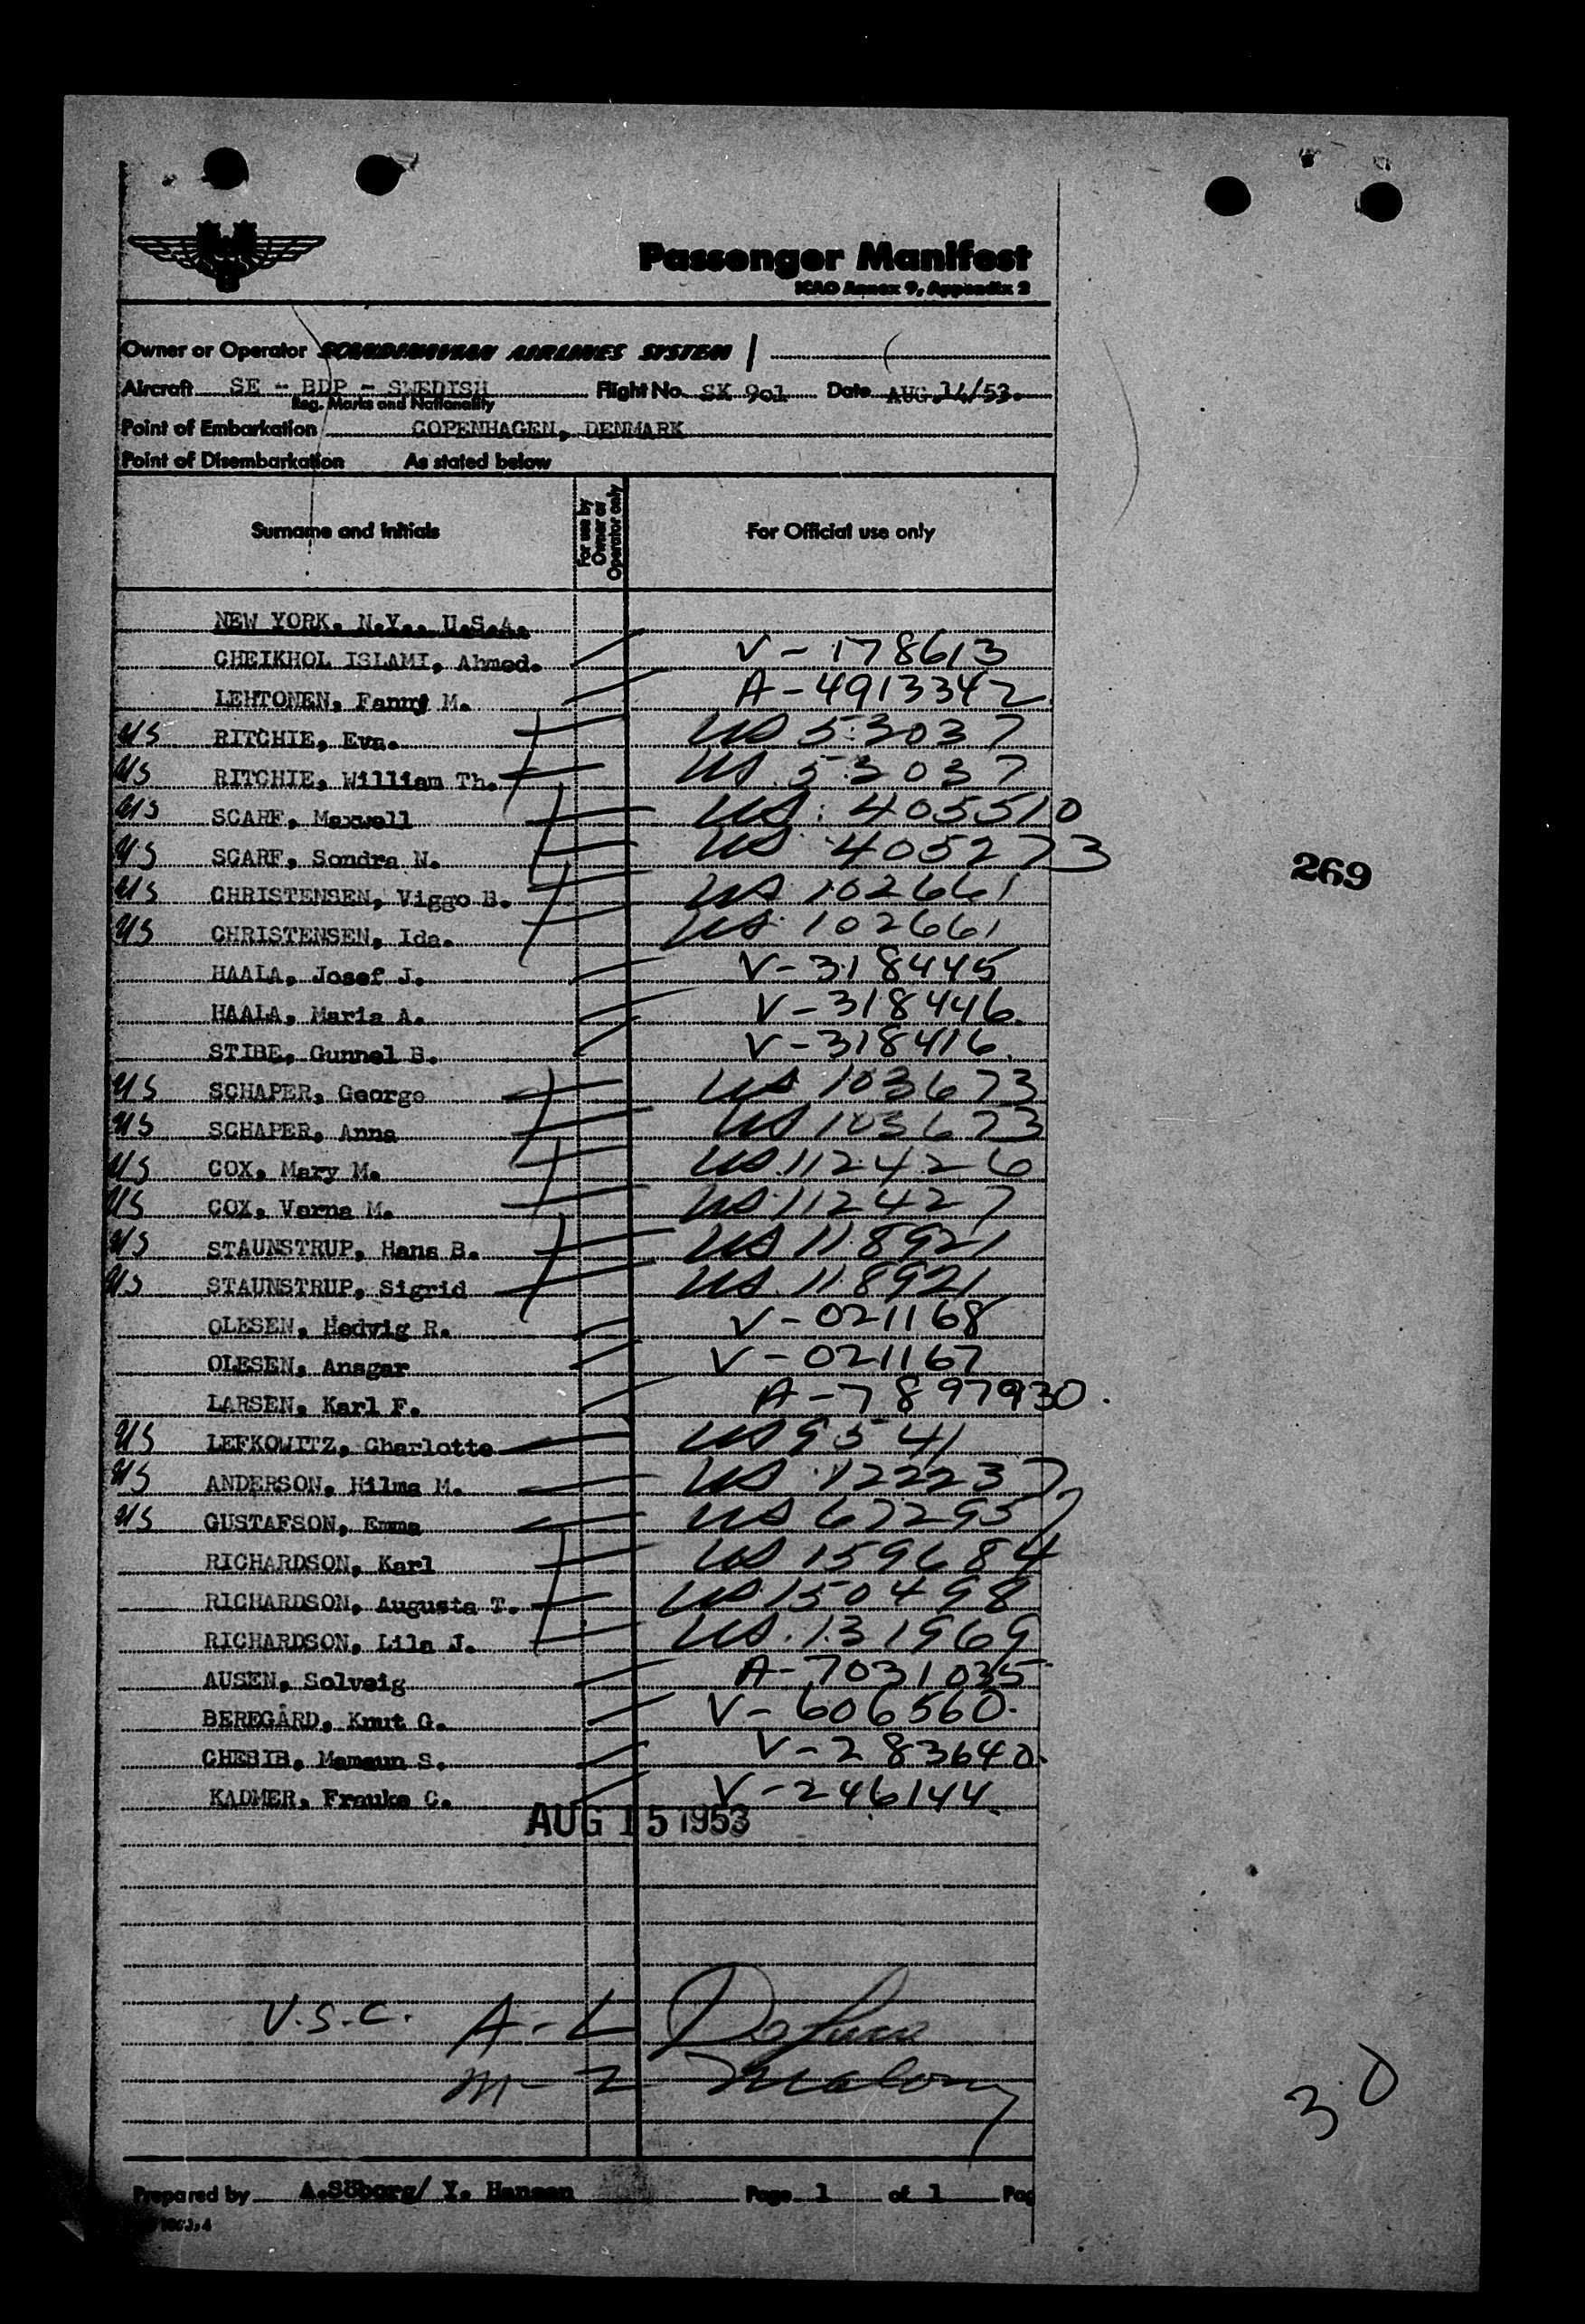 Passenger Manifest
ICAO Annex 9, Appendix 2
Owner or Operator SCANDINAVIAN AIRLINES SYSTEM
Aircraft SE - BDP - SWEDISH Flight No. SK 901 Date AUG.14/53.
Reg. Marks and Nationality
Point of Embarkation COPENHAGEN, DENMARK
Point of Disembarkation As stated below
Surname and initials For use by Owner or Operator only For Official use only
NEW YORK. N.Y., U.S.A.
CHEIKHOL ISLAMI, Ahmed. V-178613
LEHTONEN, Fanny M. A-4913342
US RITCHIE, Eva. US 53037
US RITCHIE, William Th. US 53037
US SCARF, Maxwell US 405510
US SCARF, Sondra N. US 405273
US CHRISTENSEN, Viggo B. US 102661
US CHRISTENSEN, Ida. US 102661
HAALA, Josef J. V-318445
HAALA, Maria A. V-318446
269
STIBE, Gunnel B. V-318416
US SCHAPER, George US 103673
US SCHAPER, Anna US 103673
US COX, Mary M. US 112426
US COX, Verna M. US 112427
US STAUNSTRUP, Hans B. US 118921
US STAUNSTRUP, Sigrid US 118921
OLESEN, Hedvig R. V-021168
OLESEN, Ansgar V-021167
LARSEN, Karl F. A-7897930.
US LEFKOWITZ, Charlotte US 9541
US ANDERSON, Hilma M. US 122237
US GUSTAFSON, Emma US 672957
RICHARDSON, Karl US 159684
RICHARDSON, Augusta T. US 150498
RICHARDSON, Lila J. US 131969
AUSEN, Solveig A-7031035
BEREGÅRD, Knut G. V-606560.
CHEBIB, Mamoun S. V-283640.
KADMER, Frauke C. V-246144
AUG 15 1953
U.S.C. A-L DeLuca
M-Z Malony
30
Prepared by A.Söborg/ Y. Hansen Page 1 of 1